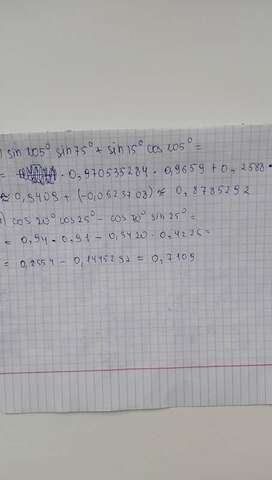 sin 205° sin 75° + sin 15° cos 205° =
= · 0,970535284 · 0,9659 + 0,2588 ·
≈ 0,9409 + (-0,0623708) ≈ 0,8785292
cos 20° cos 25° - cos 70° sin 25° =
= 0,94 · 0,91 - 0,3420 · 0,4226 =
= 0,8554 - 0,1445292 = 0,7109